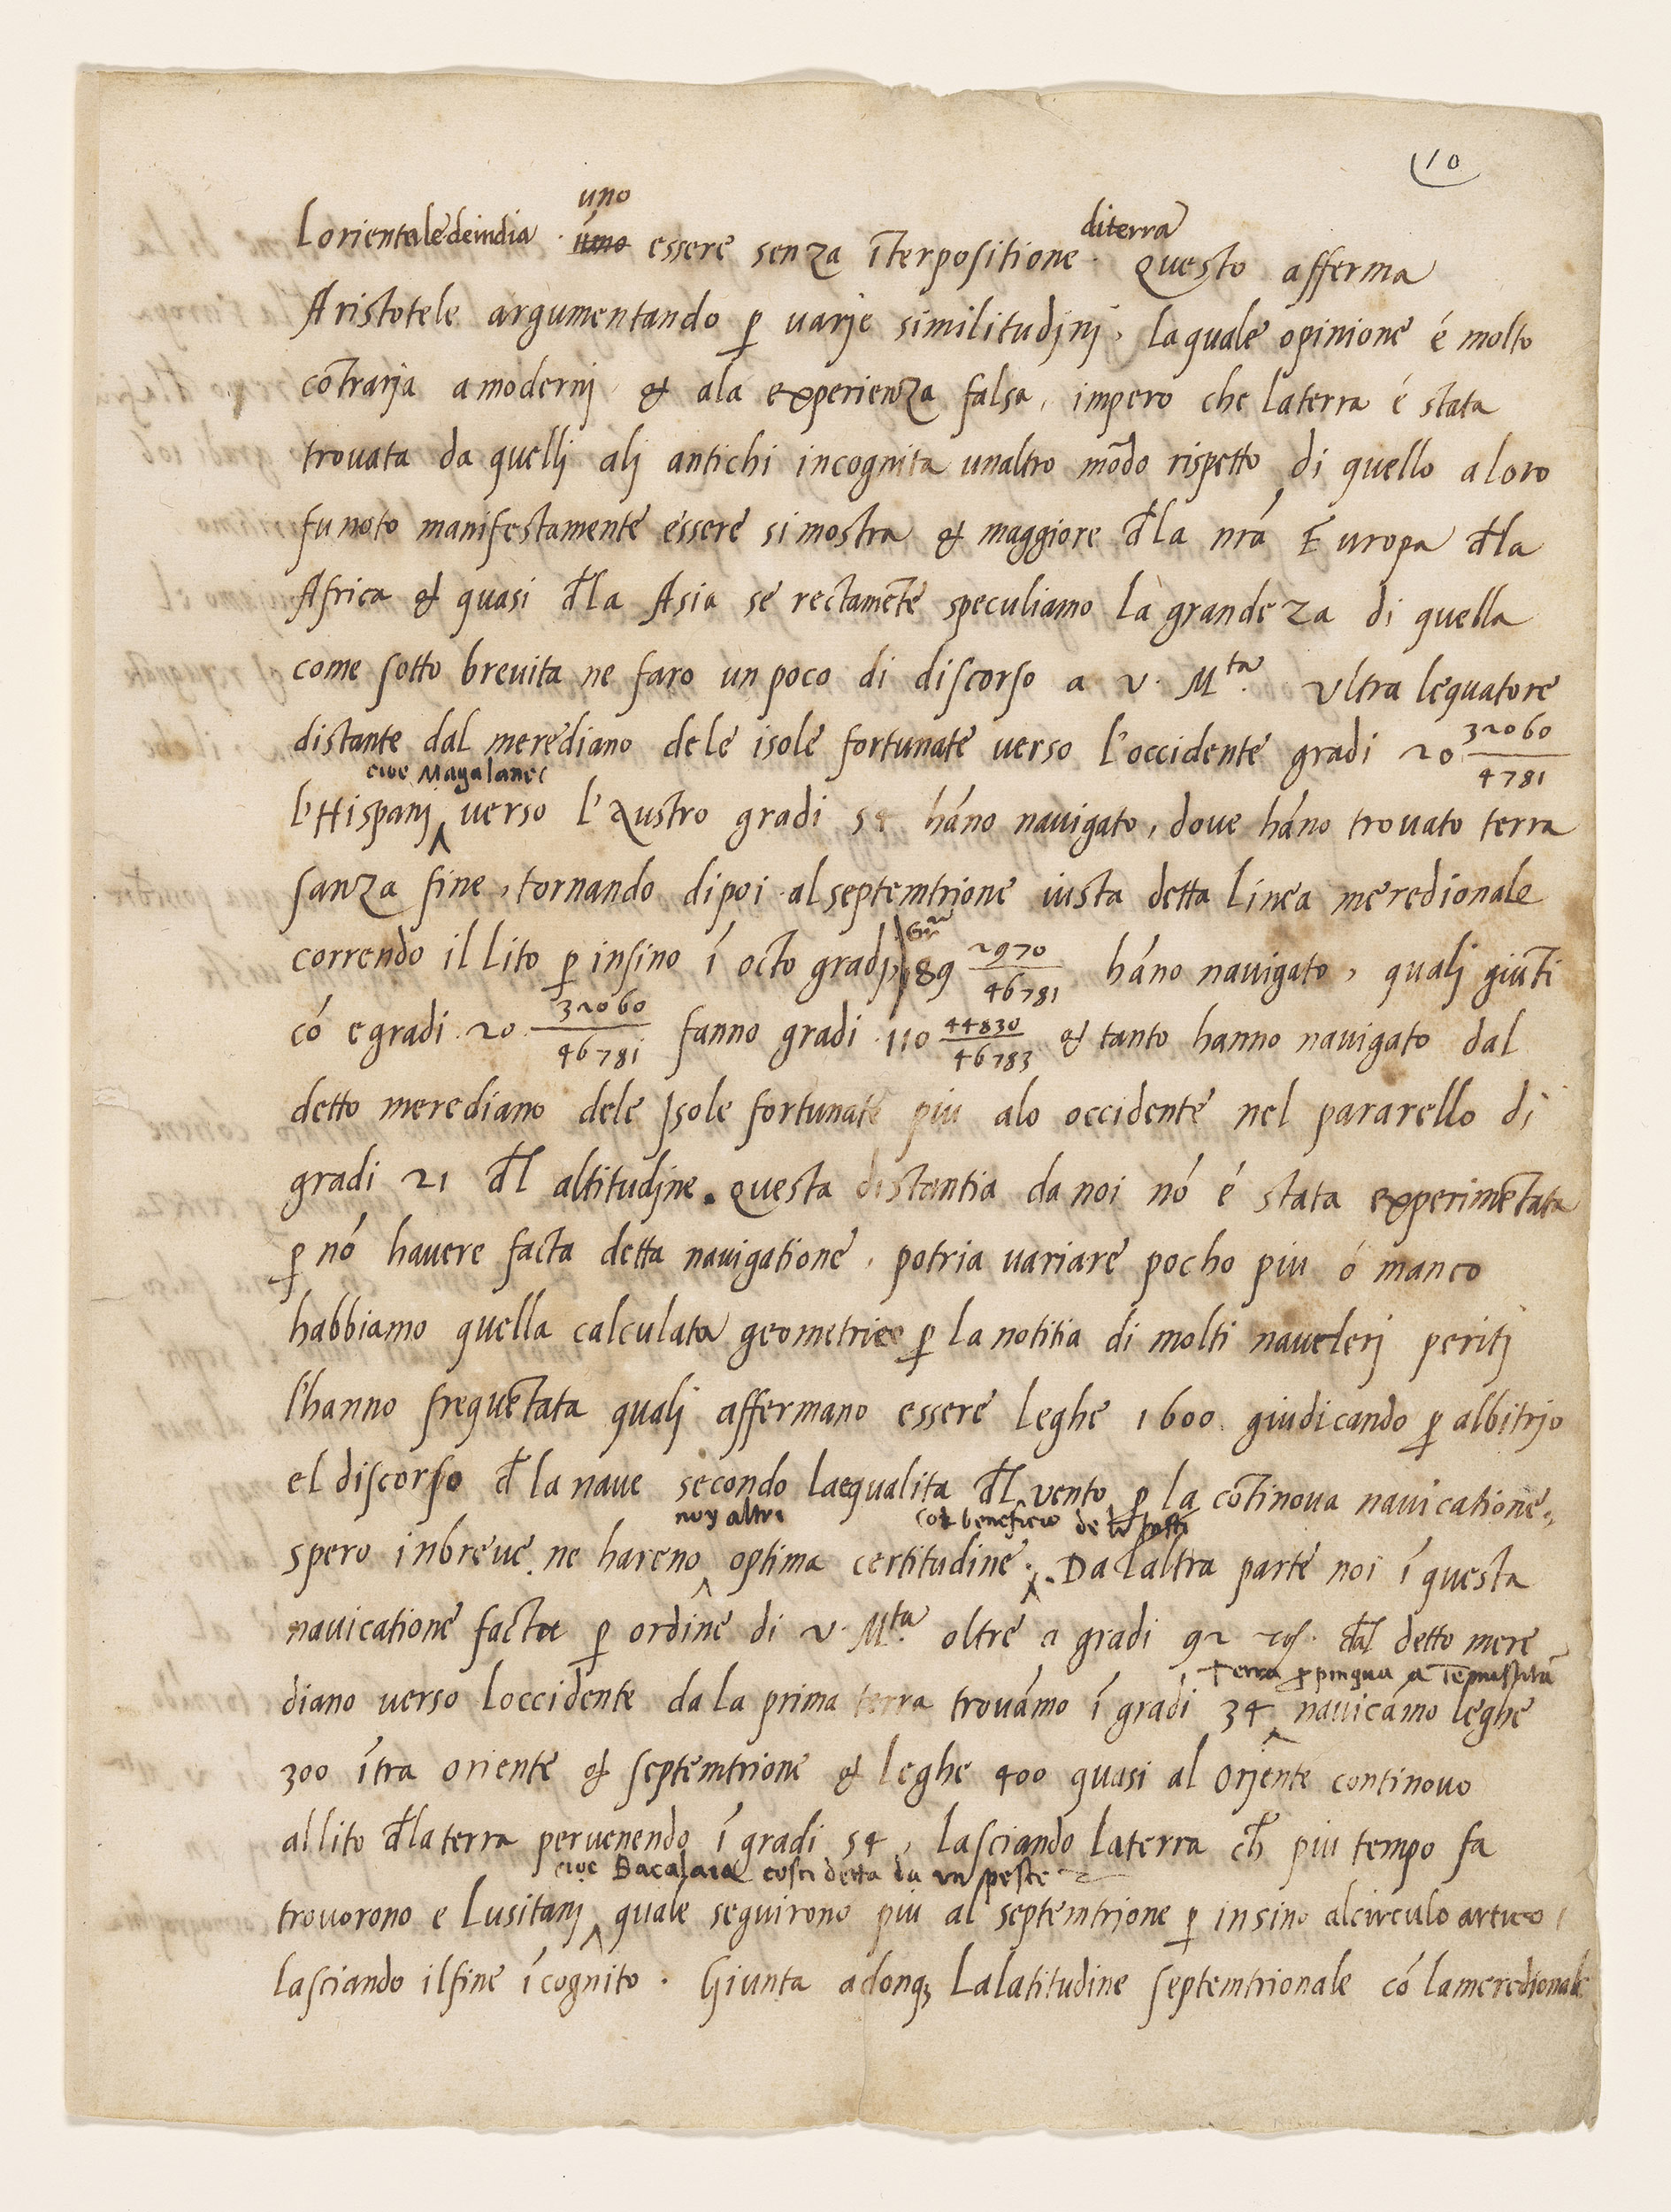 10
uno diterra
Lorientale deindia · uno essere senza īterpositione · Questo afferma
Aristotele argumentando ꝑ varie similitudinj, laquale opinione é molto
cōtraria amodernj & ala experienza falsa, impero che laterra é stata
trouata da quellj alj antichi incognita unaltro mōdo rispetto di quello aloro
fu noto manifestamente essere si mostra & maggiore đla nrā Europa đla
Africa & quasi đla Asia se rectamēte speculiamo la grandeza di quella
come sotto breuita ne faro un poco di discorso a v. Mta. Vltra lequatore
distante dal merediano dele isole fortunate verso l'occidente gradi 20 32060/4781
cioe Magalanes
l'Hispanj verso l'Austro gradi 54 hāno nauigato, doue hāno trouato terra
sanza fine, tornando dipoi al septemtrione iusta detta linea meredionale
correndo il lito ꝑ insino ī octo gradj, 89 2970/46781 hāno nauigato, qualj giūti
có e gradi 20 32060/46781 fanno gradi 110 44830/46783 & tanto hanno nauigato dal
detto merediano dele Isole fortunate piu alo occidente nel pararello di
gradi 21 đl altitudine. Questa distantia da noi nó é stata experimētata
ꝑ nó hauere facta detta nauigatione, potria variare pocho piu ó manco
habbiamo quella calculata geometrice ꝑ la notitia di molti nauelerj peritj
l'hanno frequētata qualj affermano essere leghe 1600 giudicando ꝑ albitrio
el discorso đ la naue secondo laequalita đl vento ꝑ la cōtinoua nauicatione,
noy altri col beneficio de
spero inbreue ne hareno optima certitudine. Da l altra parte noi ī questa
nauicatione facta ꝑ ordine di v. Mta. oltre a gradi 92 đal detto mere
terra ꝓpinqua a Temistitā
diano verso loccidente da la prima terra trouāmo ī gradi 34 nauicāmo leghe
300 ītra oriente & septemtrione & leghe 400 quasi al Oriente continouo
allito đlaterra peruenendo ī gradi 54, lasciando laterra ch̄ piu tempo fa
cioe Bacalaia cosi detta da un pesce
trouorono e Lusitanj quale seguirono piu al septemtrione ꝑ insino alcirculo artico
lasciando ilfine īcognito. Giunta adonqꝫ lalatitudine septemtrionale có lameredionale